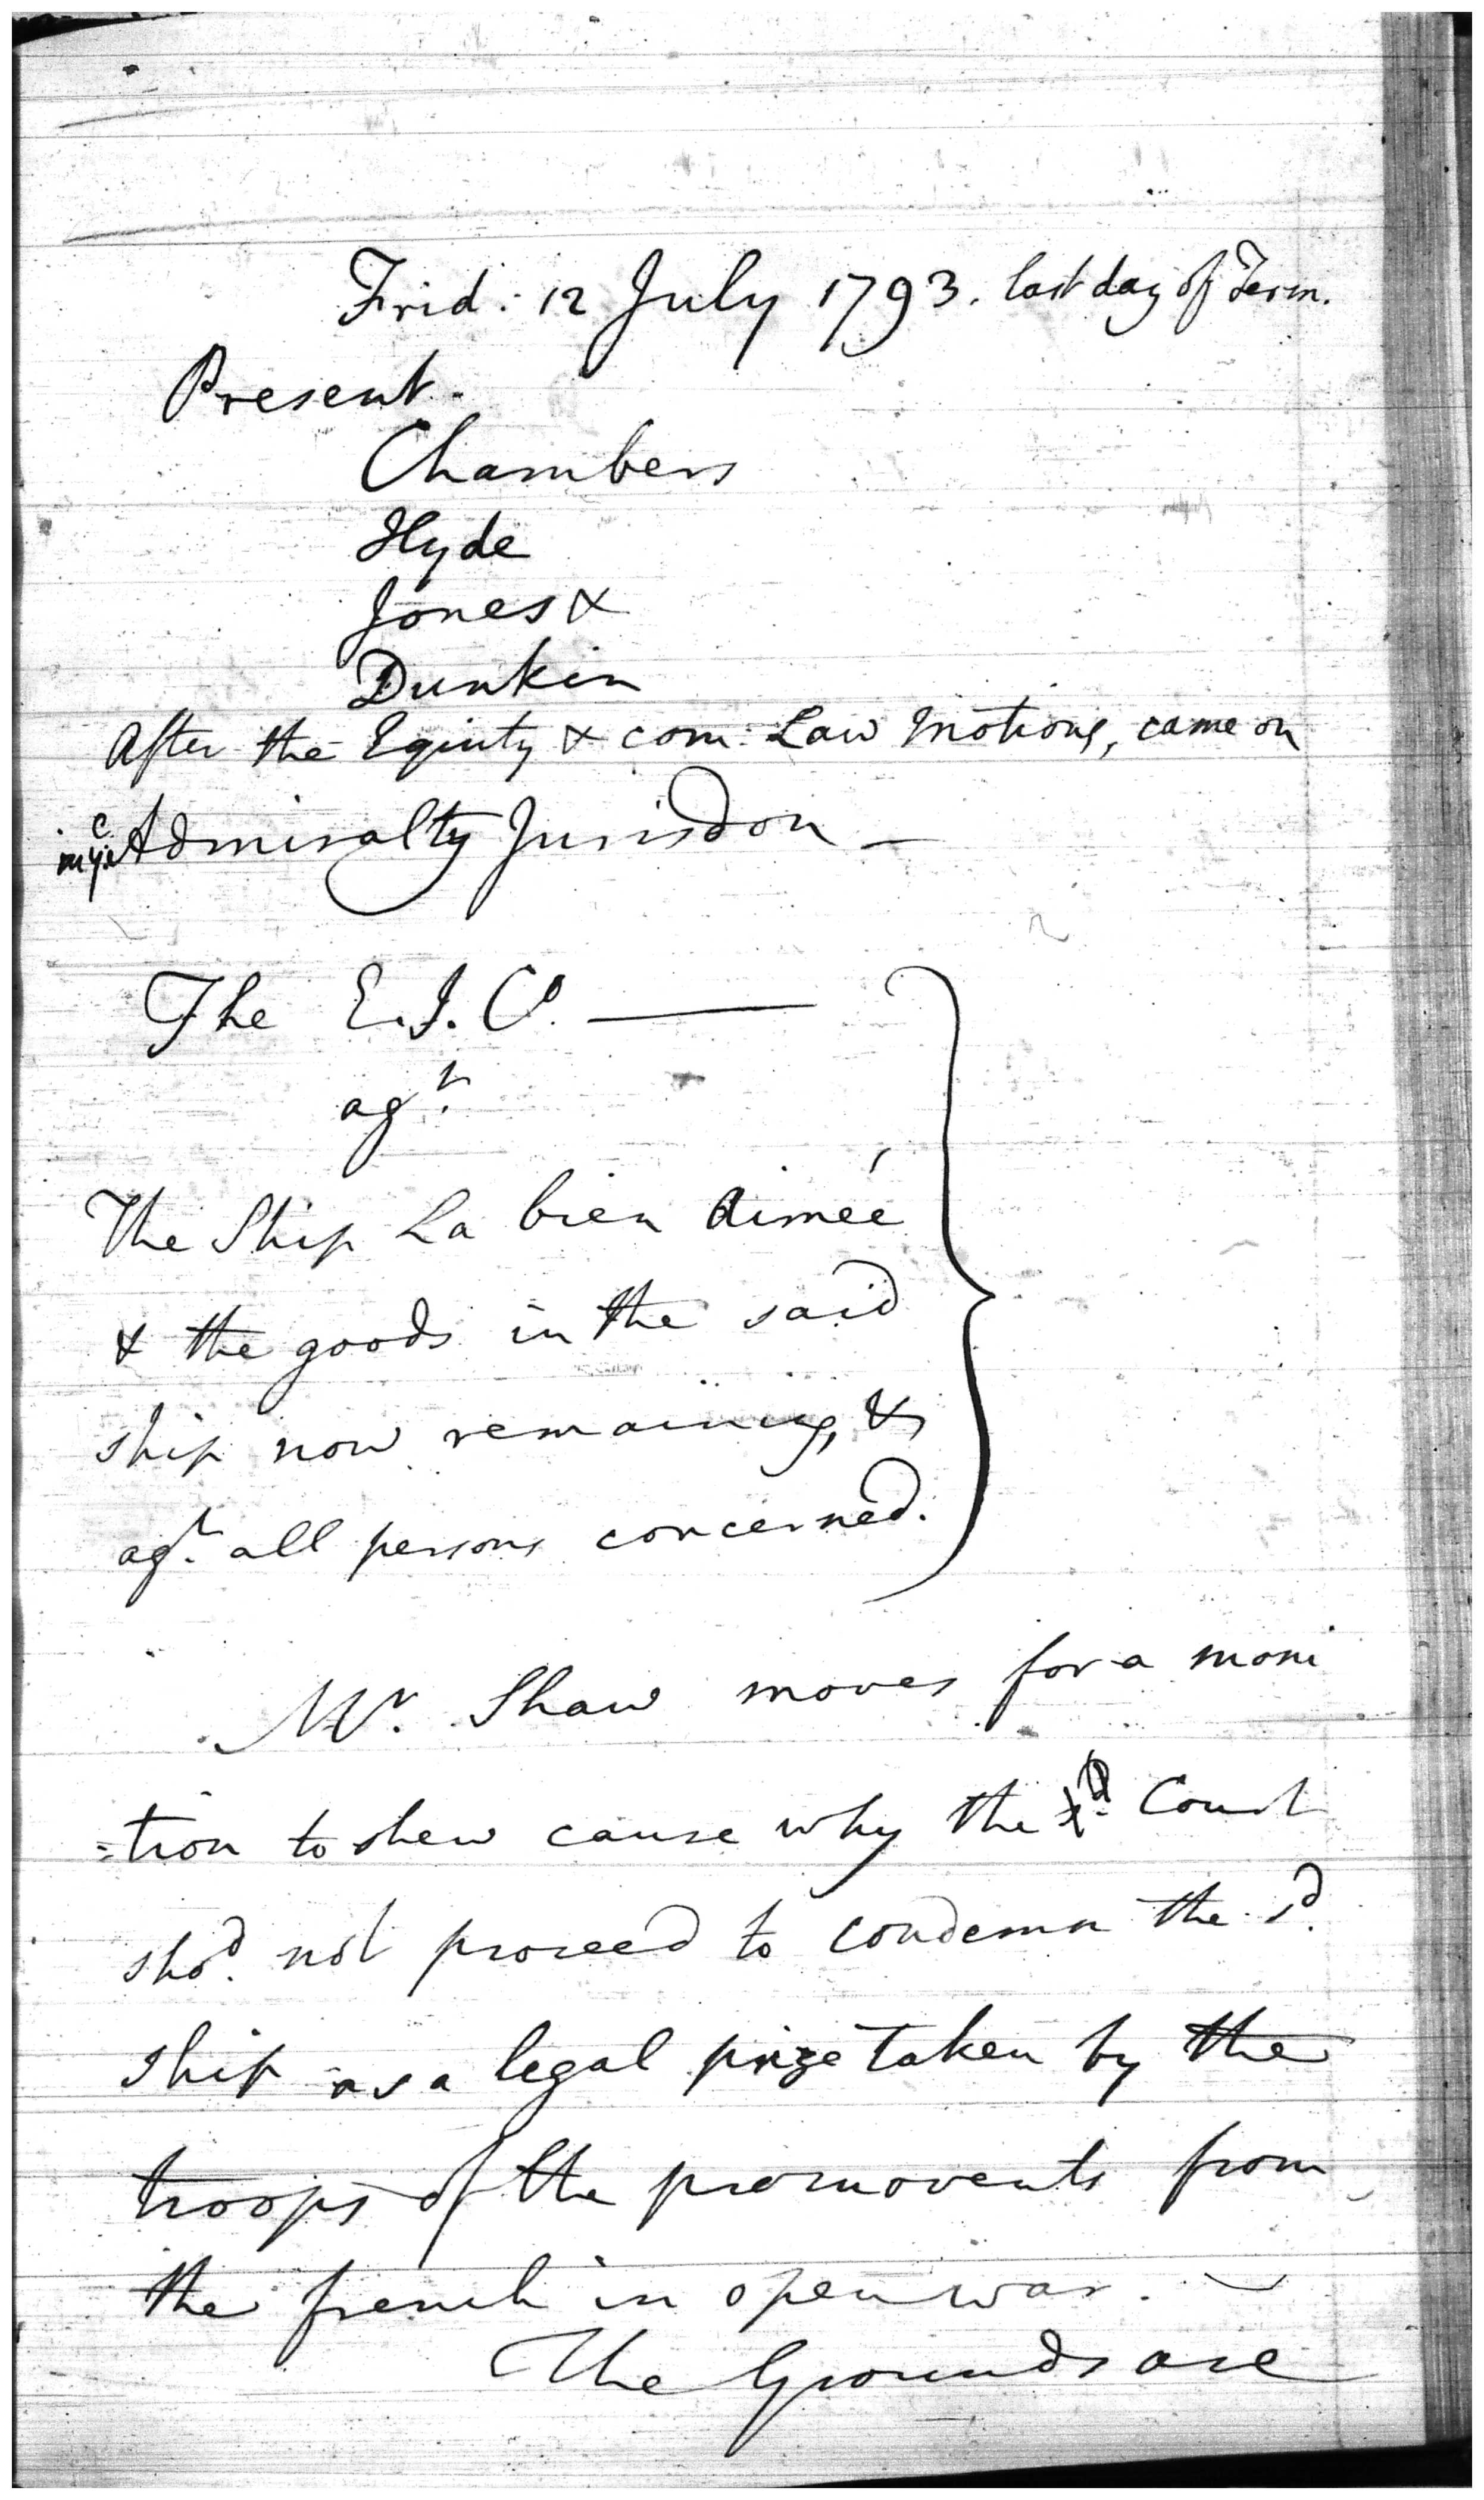 Frid: 12 July 1793. last day of Term.
Present.
Chambers
Hyde
Jones &
Dunkin
After the Equity & com: Law Motions, came on
in ye Admiralty Jurisdon —
The E.I. Co. —
agt.
The Ship La bien Aimée
& the goods in the said
ship now remaining, &
agt. all persons concerned.
Mr. Shaw moves for a moni
=tion to shew cause why the sd. Court
shod. not proceed to condemn the sd.
ship as a legal prize taken by the
troops of the promovents from
the french in open war. —
The Grounds are